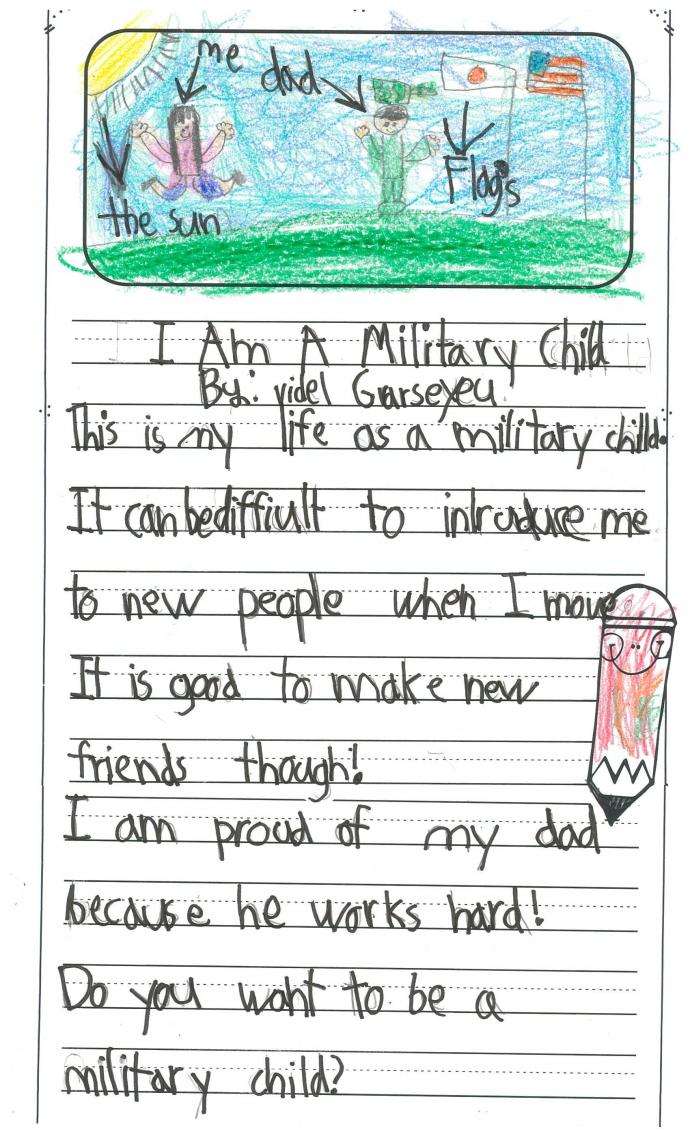 me dad
the sun
Flags
I Am A Military Child
By: videl Garseyeu
This is my life as a military chilld.
It can be diffiult to intraduce me
to new people when I move
It is good to make new
friends though!
I am proud of my dad
because he works hard!
Do you waht to be a
military child?